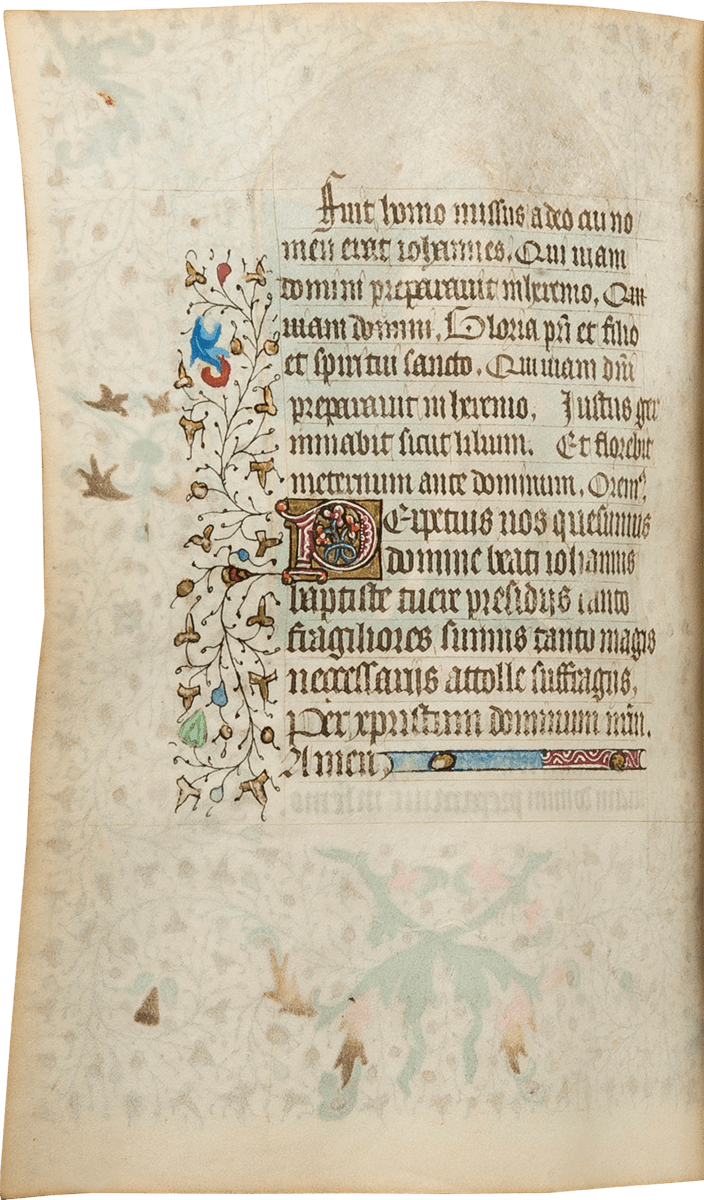 Fuit homo missus a deo cui no
men erat iohannes. Qui uiam
domini preparauit in heremo. Qui
uiam domini. Gloria pri et filio
et spiritui sancto. Qui uiam dni
preparauit in heremo. Iustus ger
minabit sicut lilium. Et florebit
in eternum ante dominum. Orem9
Perpetuis nos quesumus
domine beati iohannis
baptiste tuere presidijs tanto
fragiliores sumus tanto magis
necessarijs attolle suffragijs.
Per xpristum dominum nrm.
Amen